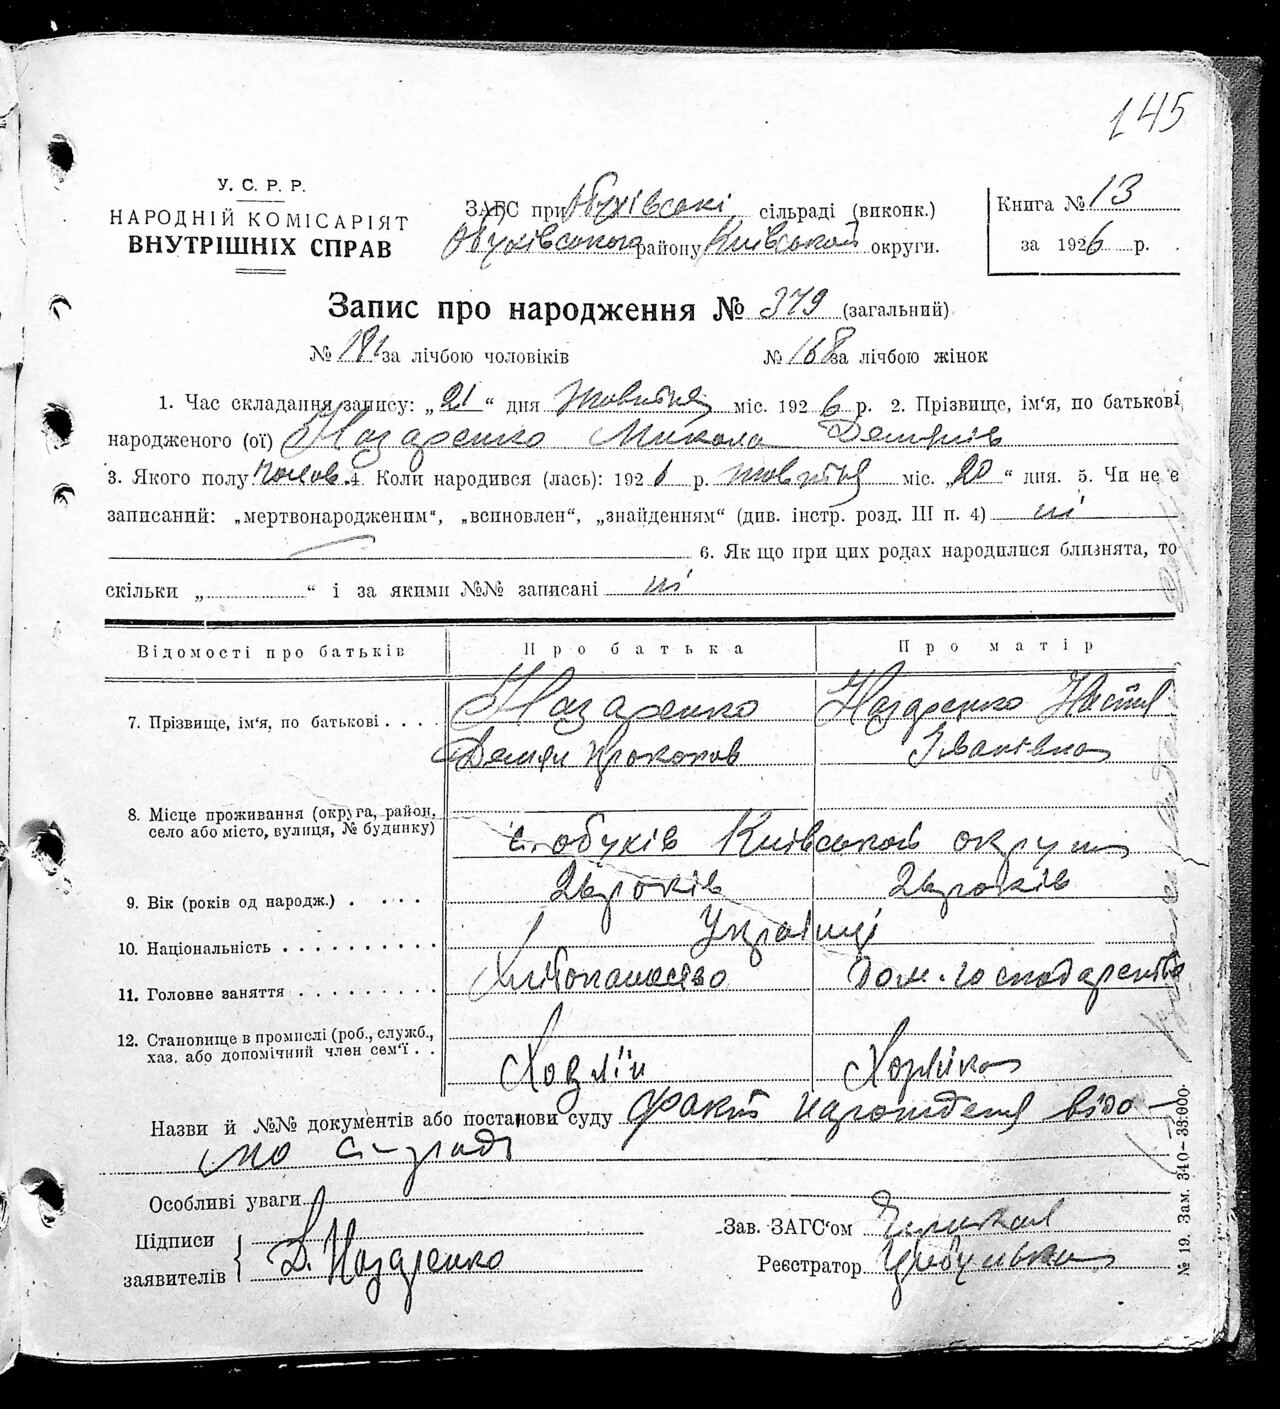 145
У. С. Р. Р.
НАРОДНІЙ КОМІСАРІЯТ
ВНУТРІШНІХ СПРАВ
ЗАГС при Обухівські сільраді (виконк.)
Обухівського району Київської округи.
Книга № 13
за 1926 р.
Запис про народження № 379 (загальний)
№ за лічбою чоловіків № 168 за лічбою жінок
1. Час складання запису: „21“ дня Жовтня міс. 1926 р. 2. Прізвище, ім'я, по батькові
народженого (ої) Назаренко Микола Демянів
3. Якого полу чолов. 4. Коли народився (лась): 1926 р. жовтня міс. „20“ дня. 5. Чи не є
записаний: „мертвонародженим“, „всиновлен“, „знайденням“ (див. інстр. розд. III п. 4) ні
6. Як що при цих родах народилися близнята, то
скільки „ “ і за якими №№ записані ні
Відомості про батьків Про батька Про матір
7. Прізвище, ім'я, по батькові . . . . Назаренко Назаренко Настя
Демян Прокопов Іванівна
8. Місце проживання (округа, район,
село або місто, вулиця, № будинку)
с. Обухів Київської округи
9. Вік (років од народж.) . . . . . 26 років 26 років
10. Національність . . . . . . . . . . Українці
11. Головне заняття . . . . . . . . . Хліборобство дом. господарство
12. Становище в промислі (роб., служб.,
хаз. або допомічний член сем'ї . . Хазяїн Хазяйка
Назви й №№ документів або постанови суду факт народження відо-
мо с-раді
Особливі уваги
Підписи
заявителів Д. Назаренко
Зав. ЗАГС'ом
Реєстратор Цибульська
№ 19. Зам. 340—33.000.